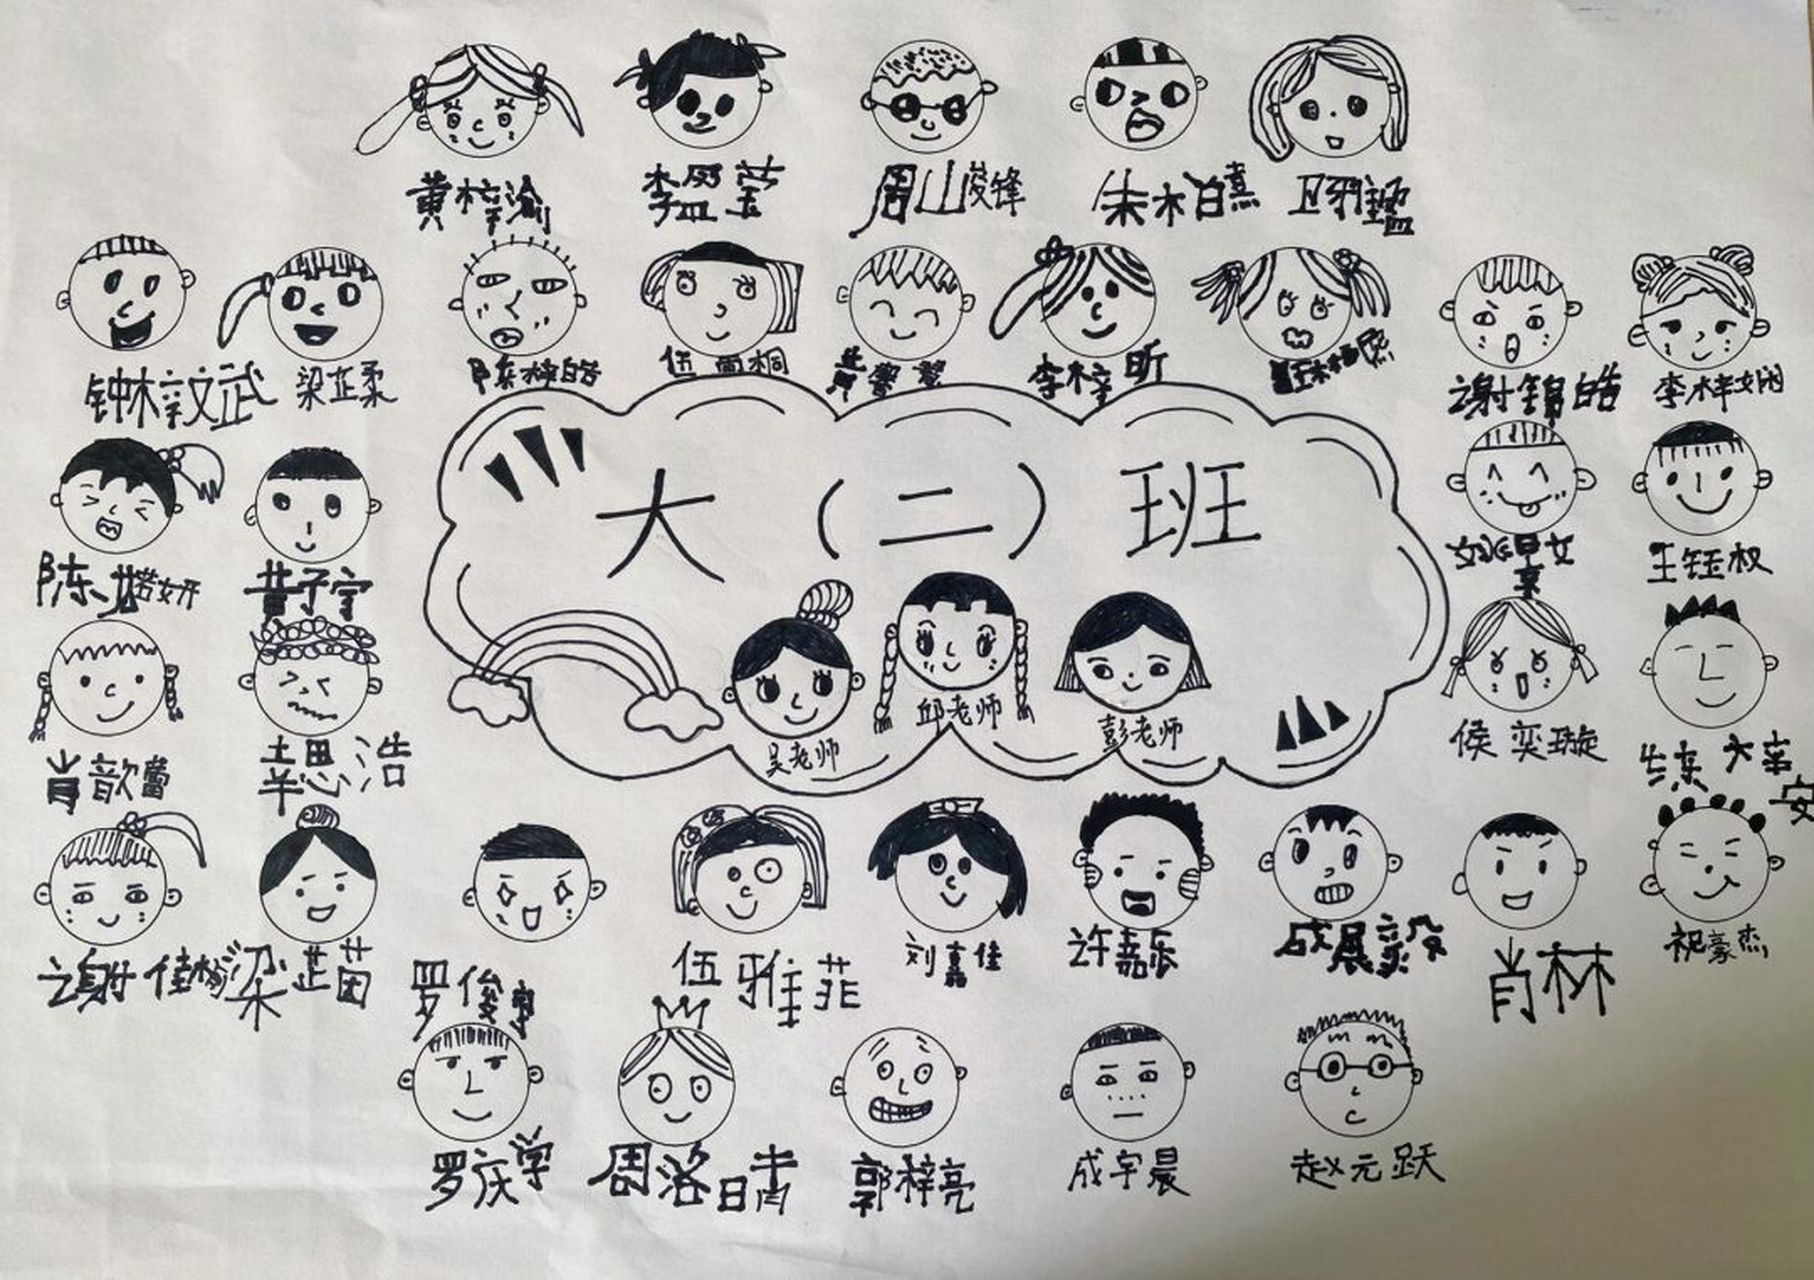 黄梓渝
李盈莹
周峻锋
朱柏熹
卫翊鑑
钟梓文武
梁芷柔
陈梓皓
伍雨桐
李梓昕
谢锦皓
李梓娴
大（二）班
陈若妍
黄子宇
王钰权
吴老师
邱老师
彭老师
肖歆蕾
侯奕璇
思浩
谢佳榆
梁芷茵
罗俊豪
伍雅菲
刘嘉佳
许嘉乐
成展毅
肖林
祝豪杰
罗庆学
周洛晴
郭梓亮
成宇晨
赵元跃